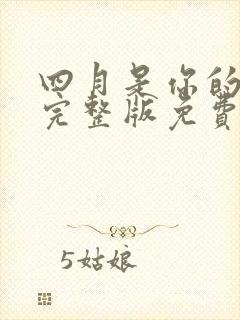 四月是你的
完整版免费
5姑娘